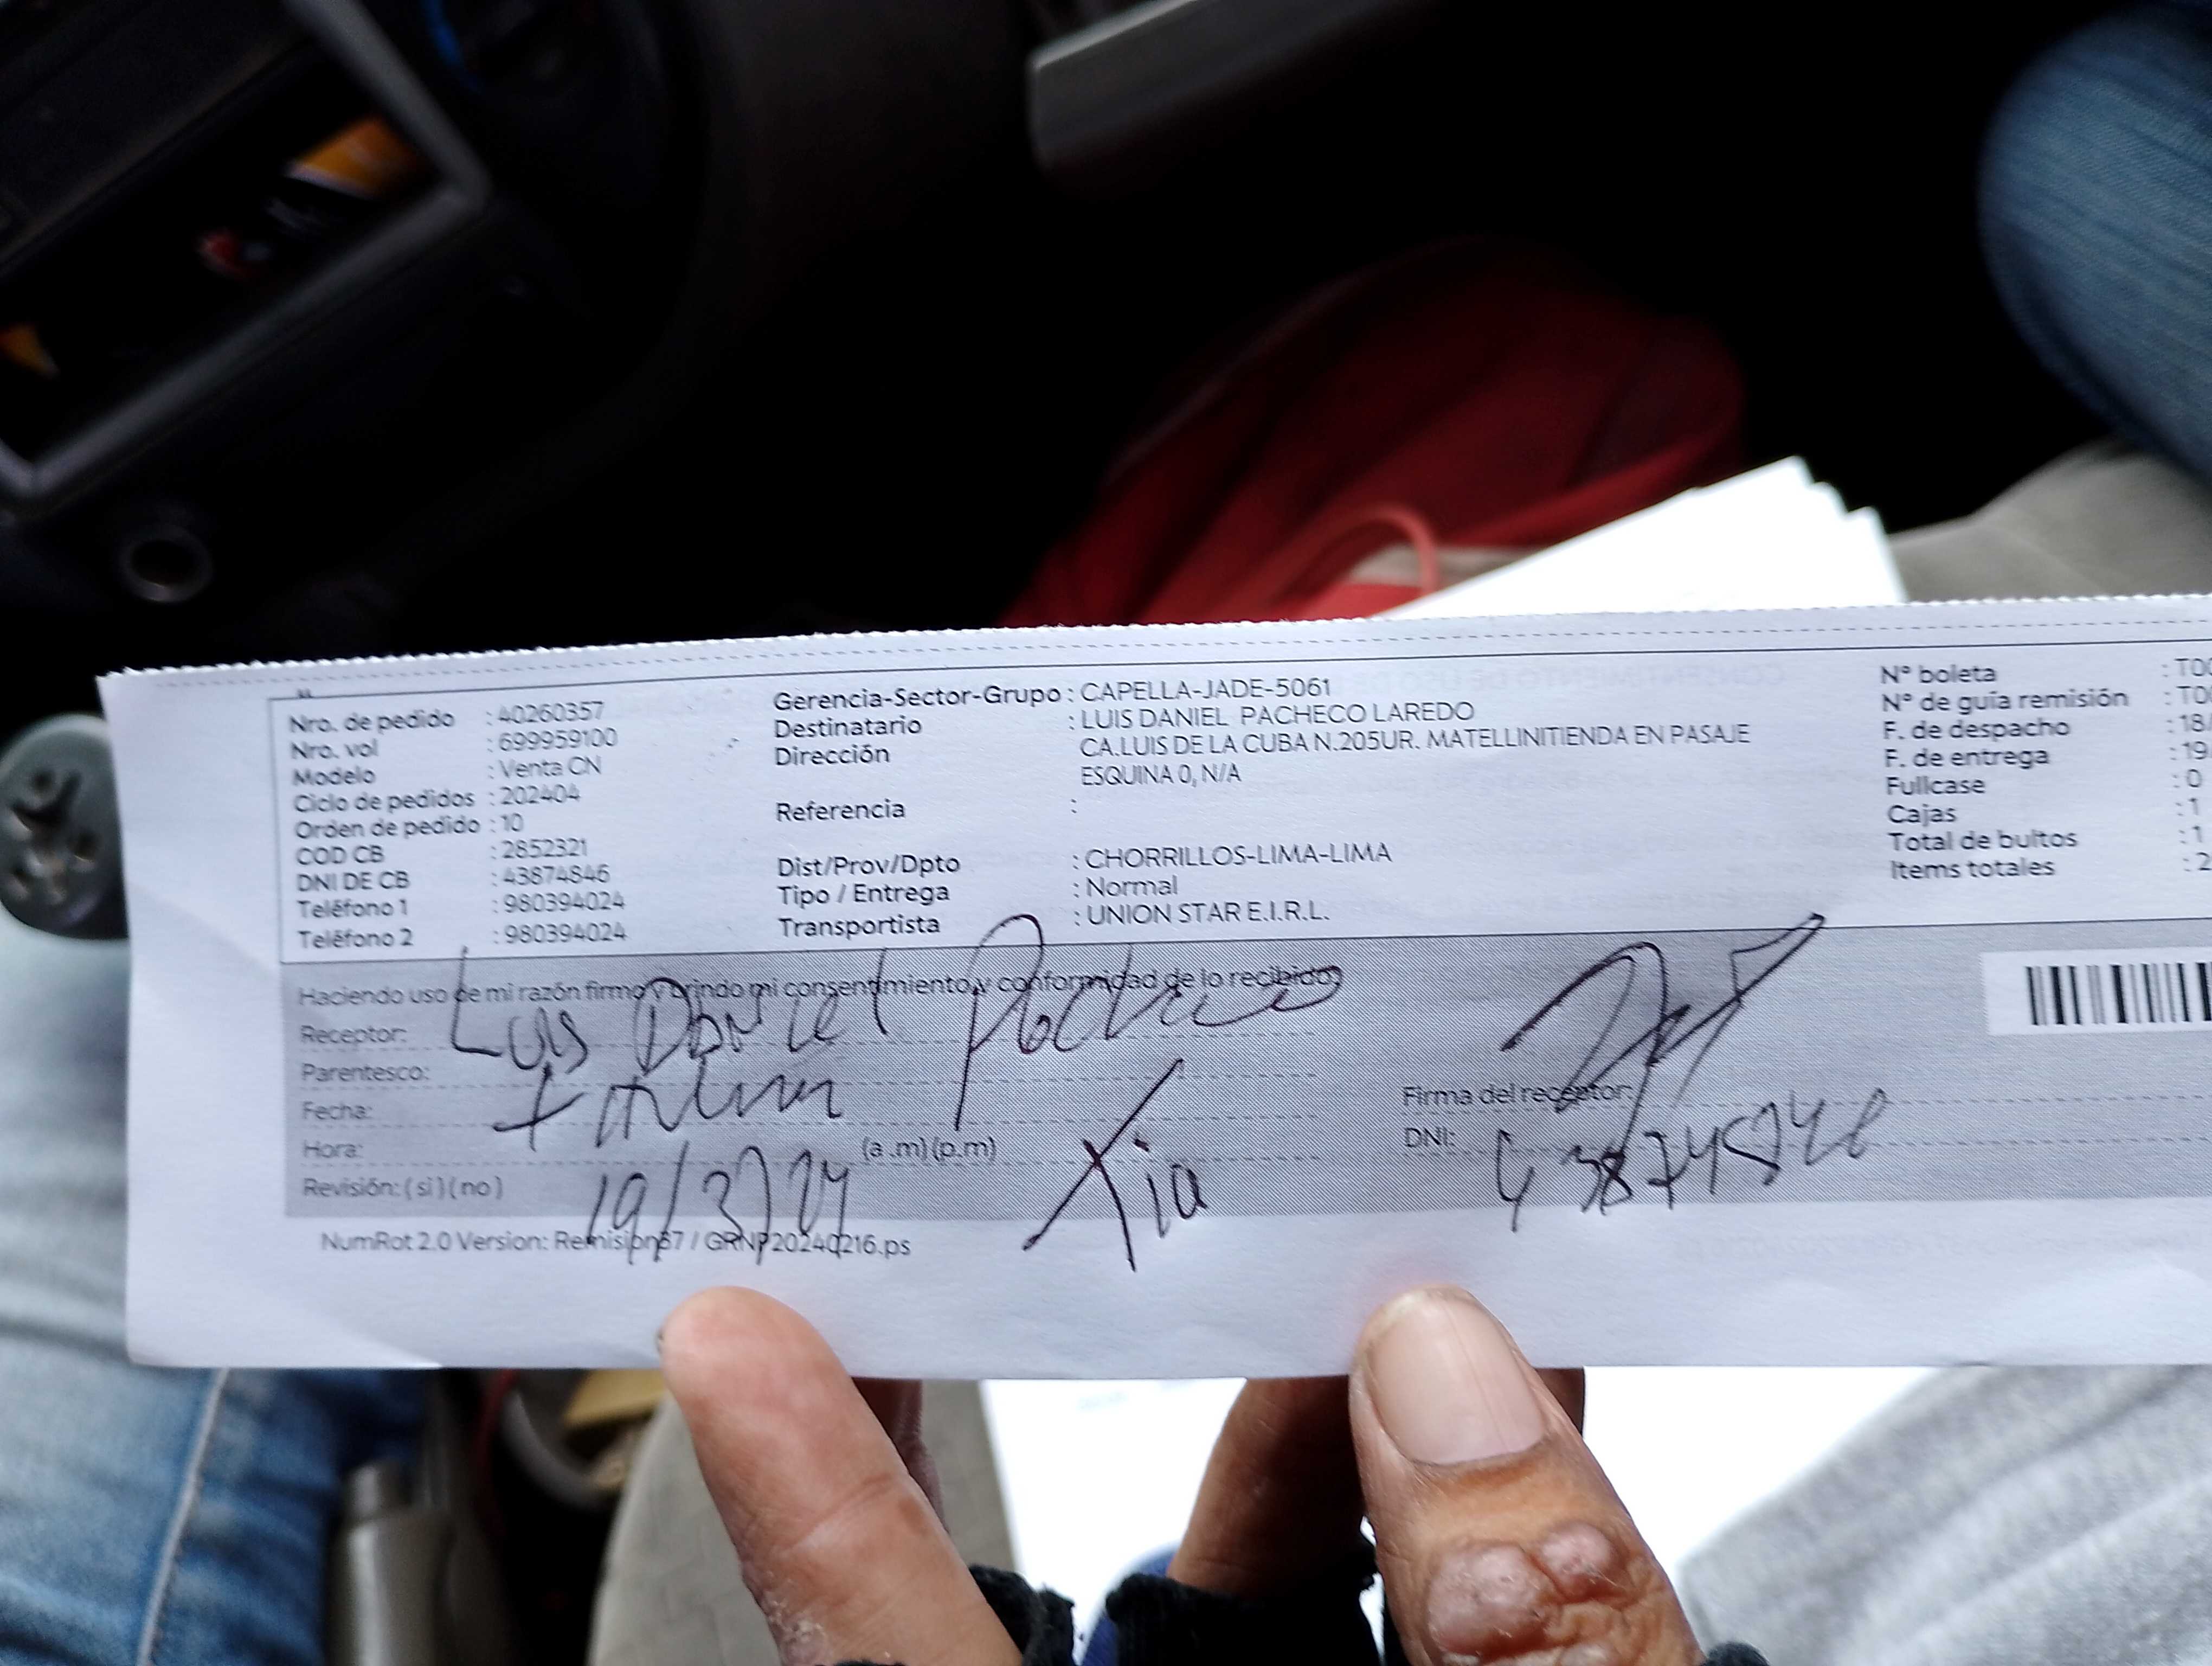 Nro. de pedido : 40260357
Nro. vol : 699959100
Modelo : Venta CN
Ciclo de pedidos : 202404
Orden de pedido : 10
COD CB : 2852321
DNI DE CB : 43874846
Teléfono 1 : 980394024
Teléfono 2 : 980394024
Gerencia-Sector-Grupo : CAPELLA-JADE-5061
Destinatario : LUIS DANIEL PACHECO LAREDO
Dirección CA.LUIS DE LA CUBA N.205UR. MATELLINITIENDA EN PASAJE
ESQUINA 0, N/A
Referencia :
Dist/Prov/Dpto : CHORRILLOS-LIMA-LIMA
Tipo / Entrega : Normal
Transportista : UNION STAR E.I.R.L.
Nº boleta : T00
Nº de guía remisión : T00
F. de despacho : 18/
F. de entrega : 19
Fullcase : 0
Cajas : 1
Total de bultos : 1
Items totales : 2
Haciendo uso de mi razón firmo y brindo mi consentimiento y conformidad de lo recibido:
Receptor: Luis Daniel Pacheco
Parentesco:
Fecha:
Hora: (a .m) (p.m)
Revisión: ( si ) ( no ) 19/3/24
Firma del receptor:
DNI:
NumRot 2.0 Version: Remision87 / GRNP20240216.ps